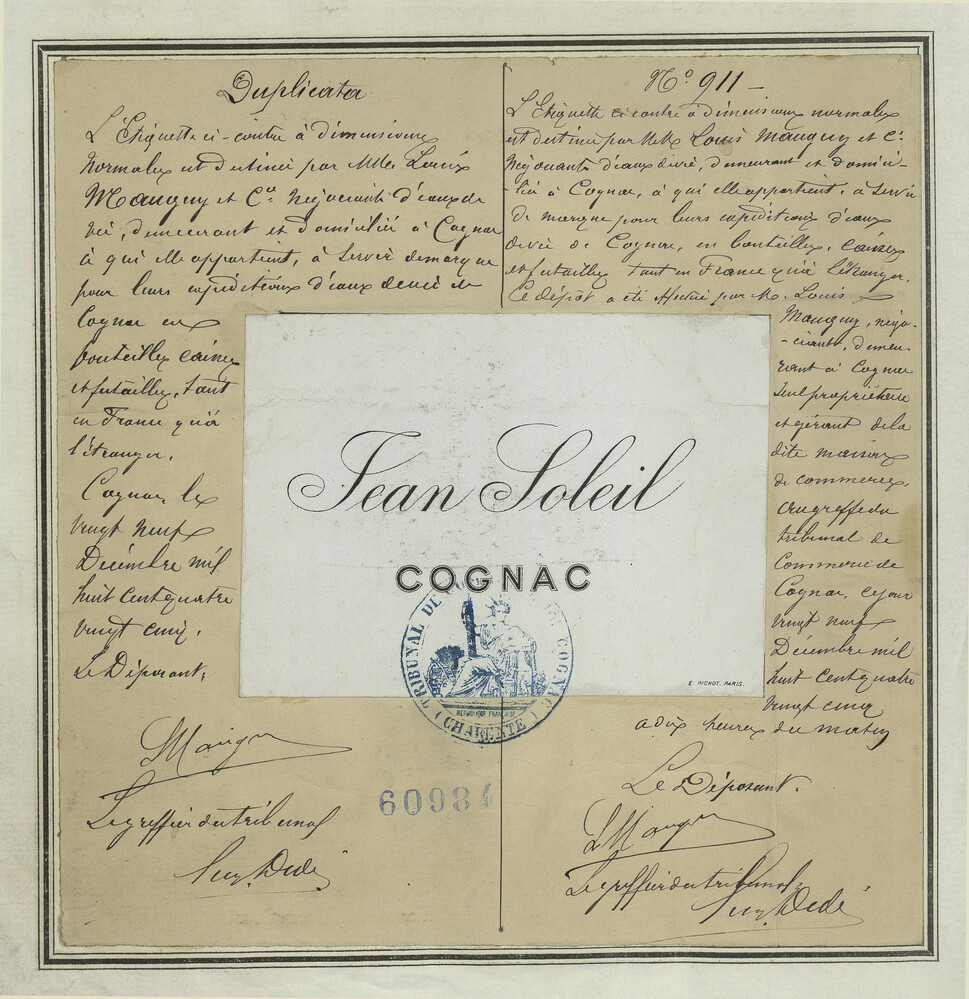 Duplicata
L'Etiquette ci-contre à dimensions
normales est destinée par MM. Louis
Maugny et Cie Négociants d'eaux de
vie, demeurant et domiciliés à Cognac
à qui elle appartient, à servir de marque
pour leurs expéditions d'eaux de vie de
Cognac en
bouteilles caisses
et futailles, tant
en France qu'à
l'étranger.
Cognac, le
vingt neuf
Décembre mil
huit cent quatre
vingt cinq.
Le Déposant;
LMaugny
Le greffier du tribunal
Dedé
No 911 -
L'Etiquette ci contre à dimensions normales
est destinée par MM. Louis Maugny et Cie
Négociants d'eaux de vie, demeurant et domici-
-liés à Cognac, à qui elle appartient, à servir
de marque pour leurs expéditions d'eaux
de vie de Cognac, en bouteilles, caisses
et futailles tant en France qu'à l'étranger.
Ce dépôt a été effectué par M. Louis
Maugny, négo-
-ciant, demeu-
rant à Cognac
seul propriétaire
et gérant de la
dite maison
de commerce,
au greffe du
tribunal de
Commerce de
Cognac, ce jour
vingt neuf
Décembre mil
huit cent quatre
vingt cinq
a dix heures du matin
Le Déposant.
LMaugny
Le greffier du tribunal;
Dedé
Jean Soleil
COGNAC
E. PICHOT. PARIS.
TRIBUNAL DE COGNAC
REPUBLIQUE FRANÇAISE
(CHARENTE)
60984